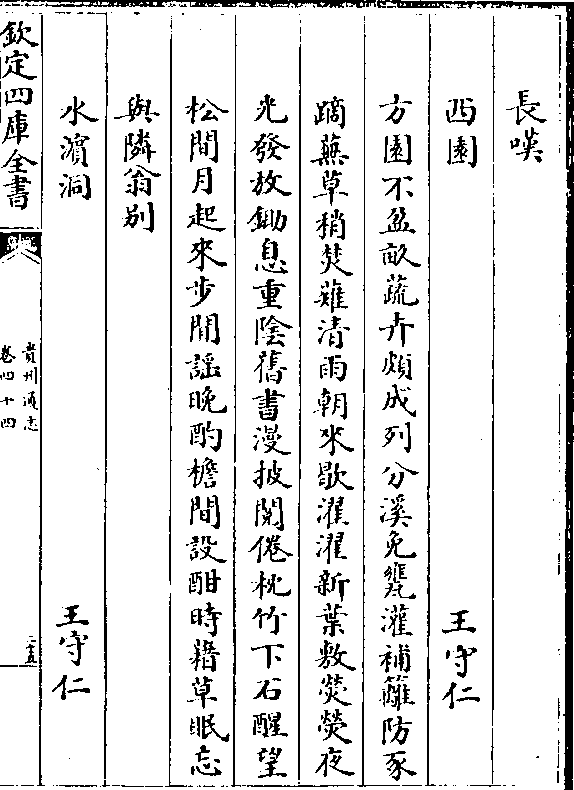 長嘆
西園 王守仁
方園不盈畝蔬卉頗成列分溪免甕灌補籬防豕
蹢蕪草稍焚薙清雨朝來歇濯濯新葉敷熒熒夜
光發放鋤息重陰舊書漫披閱倦枕竹下石醒望
松間月起來步閒謡晚酌檐間設酣時藉草眠忘
與隣翁别
水濵洞 王守仁
欽定四庫全書
貴州通志
卷四十四
二十五